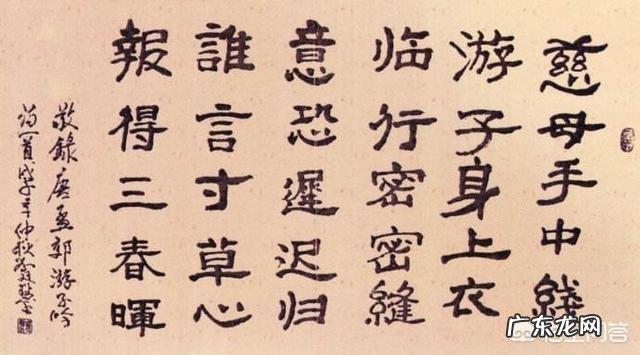 慈母手中綫
游子身上衣
临行密密縫
意恐遲迟归
誰言寸草心
報得三春暉
敬錄唐孟郊游子吟
诗一首戊子年仲秋
广东龙网
问答